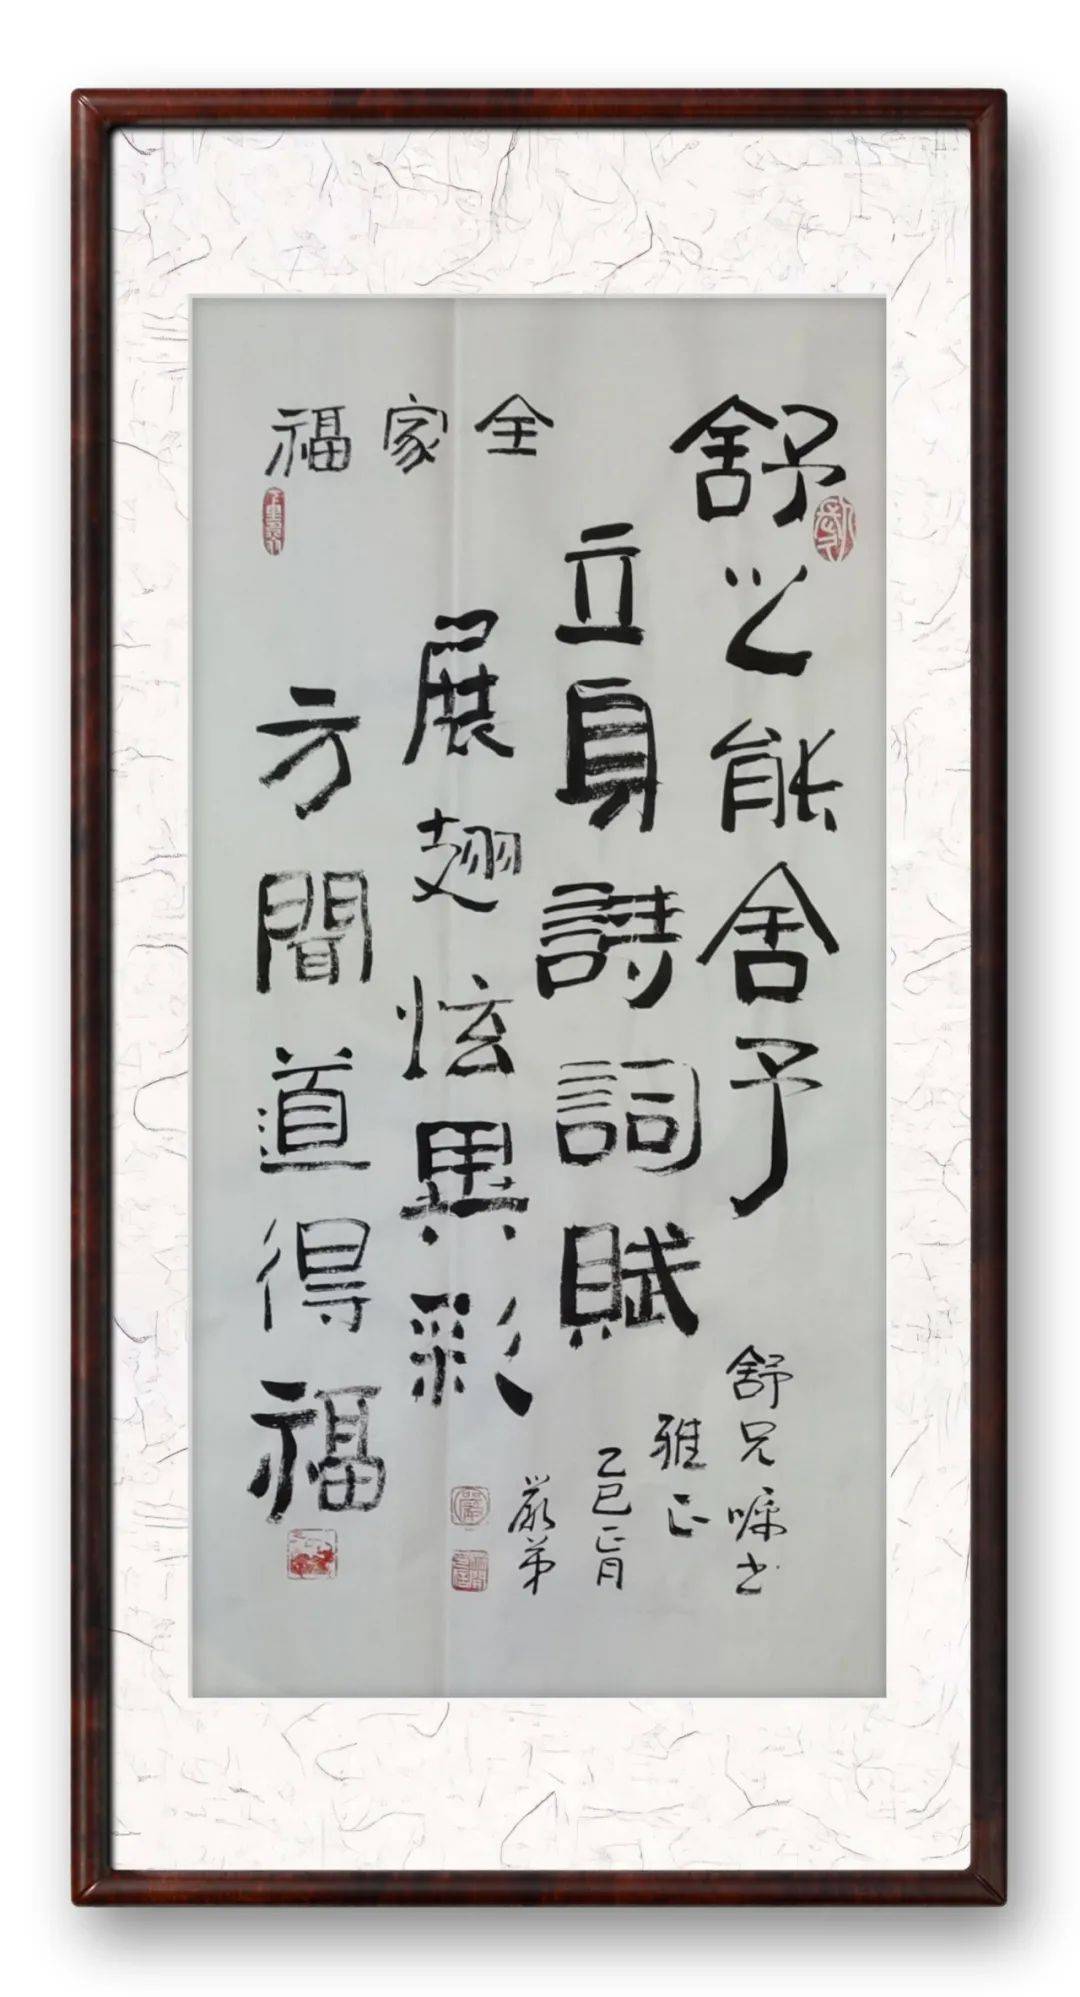 舒之能舍予
立身詩詞賦
展翅炫異彩
方聞道得福
全家福
舒兄嘱书
雅正
乙巳正月
嚴弟